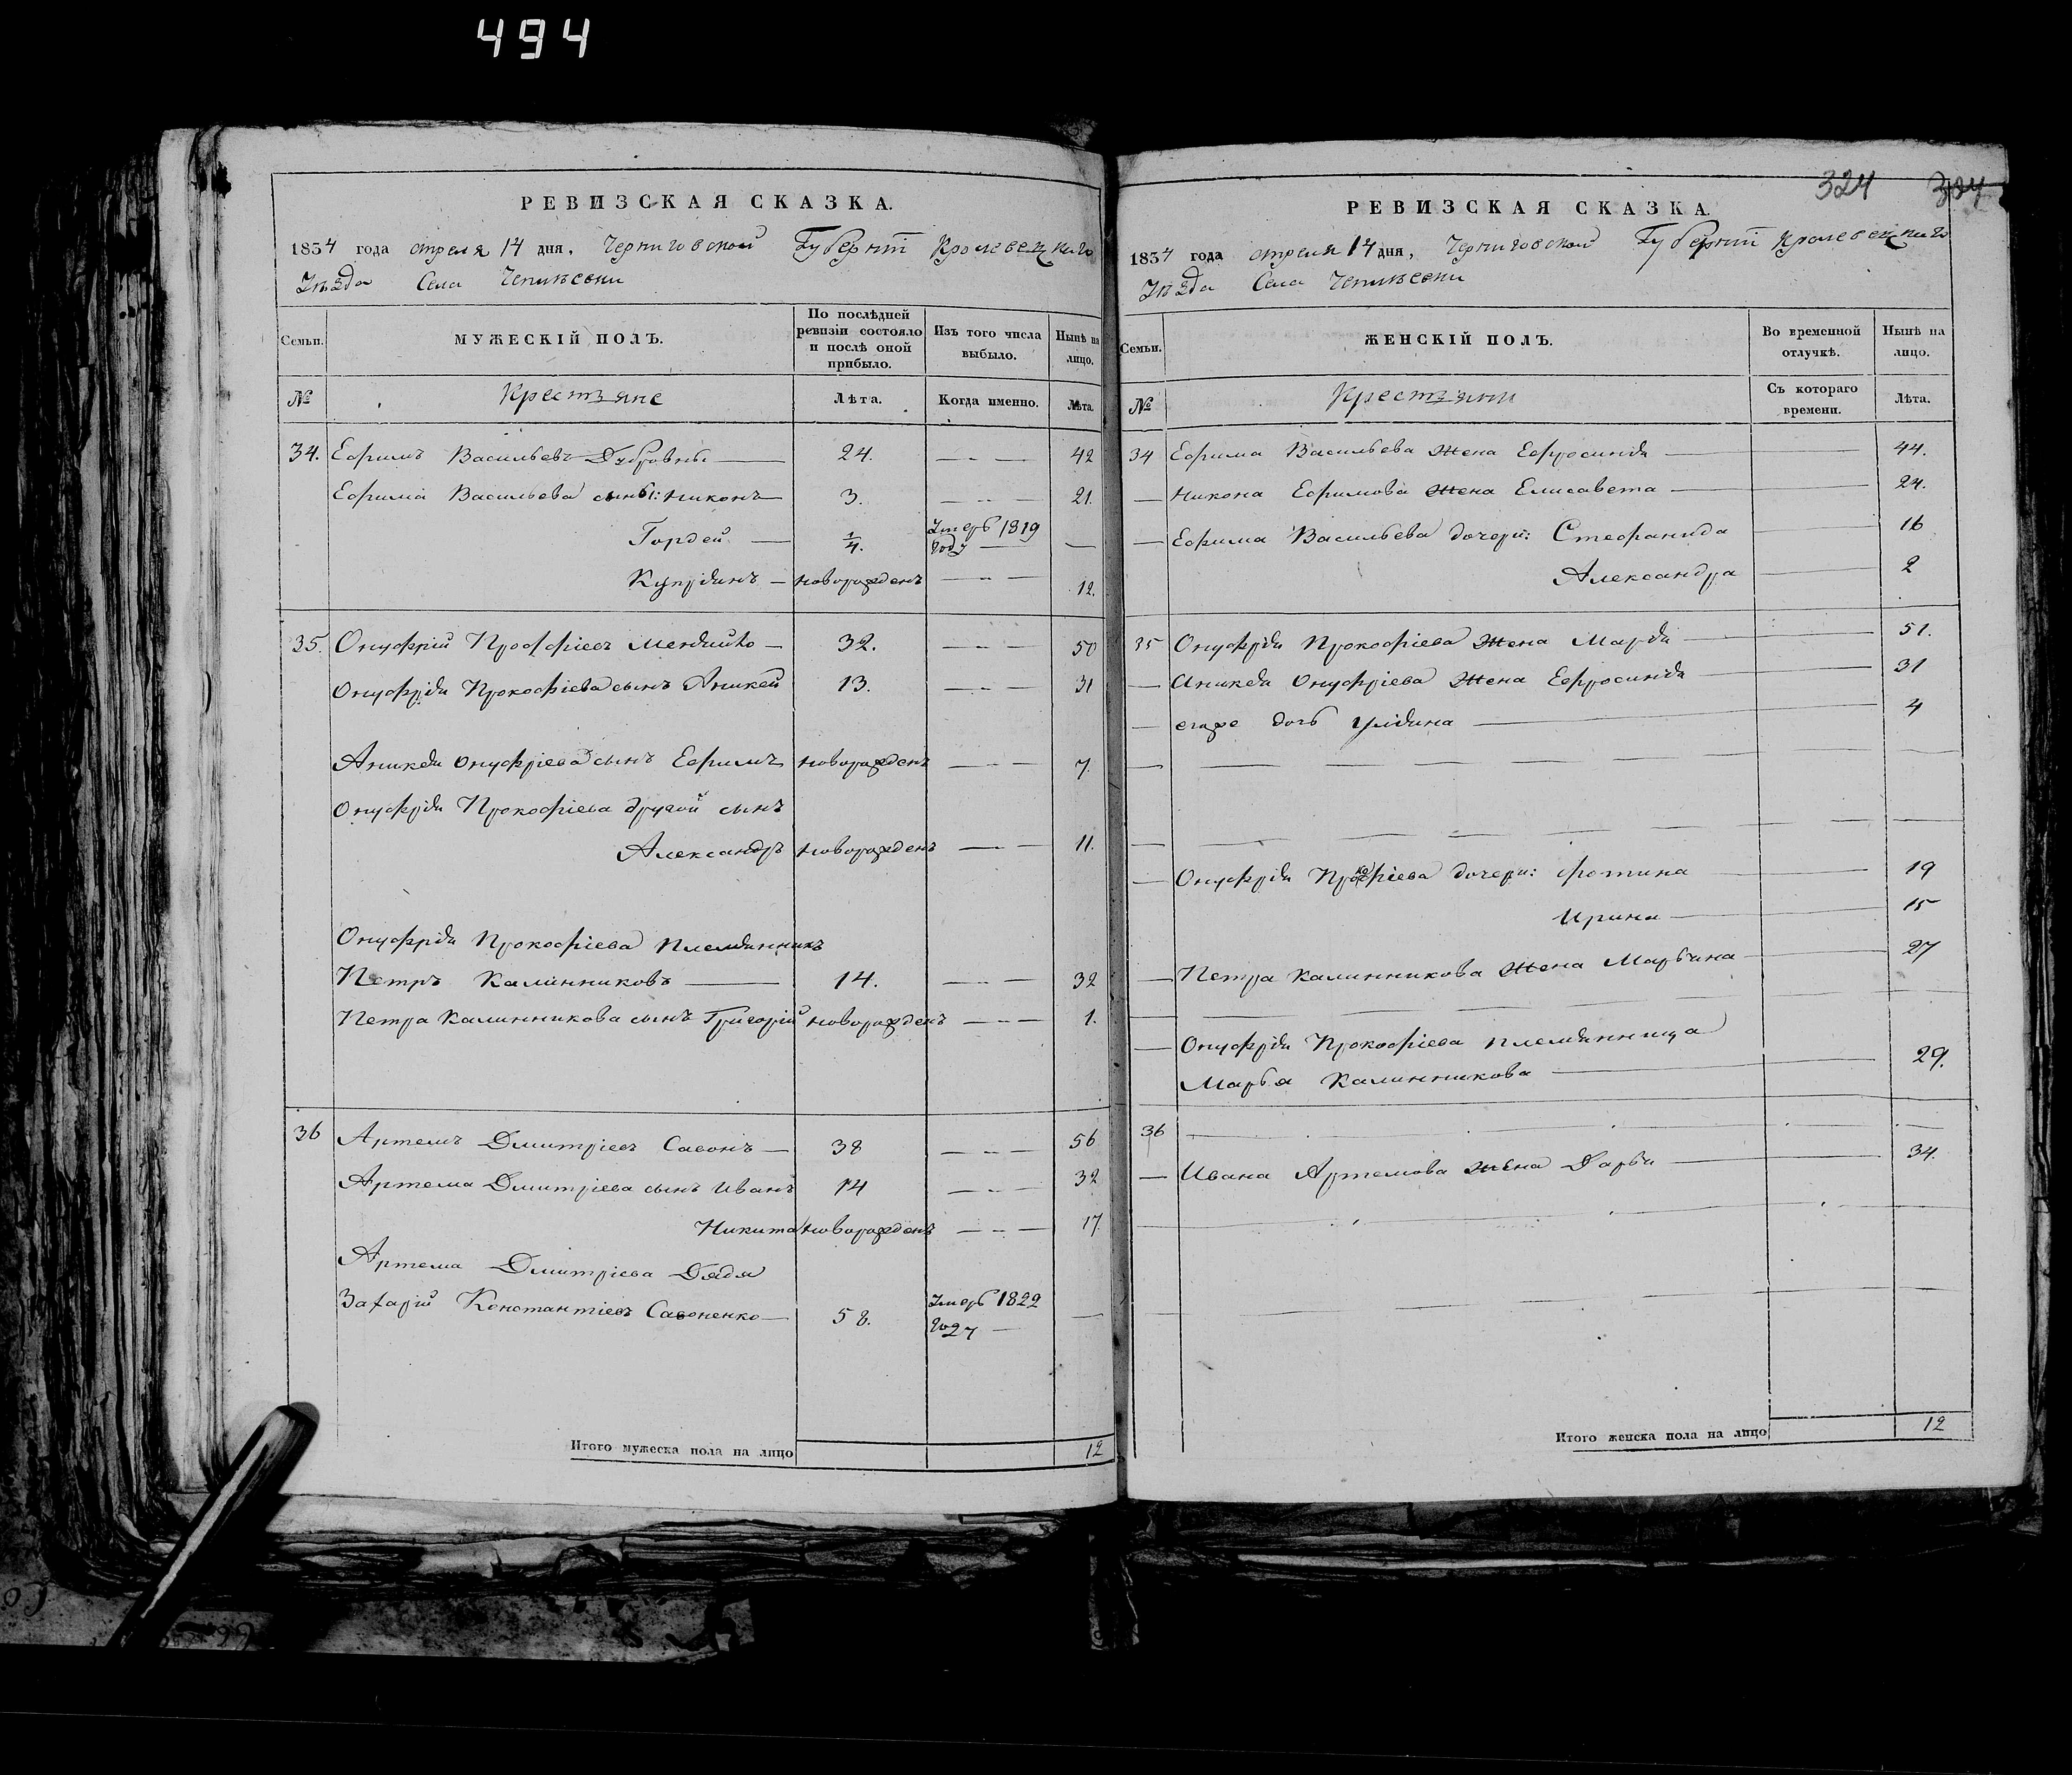 494
РЕВИЗСКАЯ СКАЗКА.
1834 года апреля 14 дня, Черниговской Губернїи Кролевецкаго
Уѣзда Села
Семьи. МУЖЕСКІЙ ПОЛЪ. По послѣдней ревизіи состояло и послѣ оной прибыло. Изъ того числа выбыло. Нынѣ на лицо.
№ Крестьяне Лѣта. Когда именно. Лѣта.
34. Ефримъ Васильевъ 24. 42
Ефрима Васильева сыны: Никонъ 3. 21.
Гордей 1/4. Умеръ 1819 году
новорожденъ 12.
35. Онуфрій Проффіевъ 32. 50
Онуфрія Прокофіева сынъ Аникей 13. 31
Аникея Онуфріева сынъ Ефримъ новорожденъ 7.
Онуфрія Прокофіева другой сынъ
Александръ новорожденъ 11.
Онуфрія Прокофіева племянникъ
Петръ Калинниковъ 14. 32
Петра Калинникова сынъ Григорій новорожденъ 1.
36 Артемъ Дмитріевъ Савонъ 38 56
Артема Дмитріева сынъ Иванъ 14 32
Никита новорожденъ 17.
Артема Дмитріева Дядя
Захарій Константіевъ Савоненко 58. Умеръ 1822 году
Итого мужеска пола на лицо 12
324 324
РЕВИЗСКАЯ СКАЗКА.
1834 года апреля 14 дня, Черниговской Губернїи Кролевецкаго
Уѣзда Села
Семьи. ЖЕНСКІЙ ПОЛЪ. Во временной отлучкѣ. Нынѣ на лицо.
№ Крестьянки Съ котораго времени. Лѣта.
34 Ефрима Васильева жена Ефросинія 44.
Никона Ефримова жена Елисавета 24.
Ефрима Васильева дочери: Стефанида 16
Александра 2
35 Онуфрія Прокофіева жена Марья 51.
Аникея Онуфріева жена Ефросинія 31
егоже дочь Уліяна 4
Онуфрія Прокофіева дочери: Фотина 19
Ирина 15
Петра Калинникова жена Марьяна 27
Онуфрія Прокофіева племянница
Марья Калинникова 29.
36
Ивана Артемова жена Дарья 34.
Итого женска пола на лицо 12